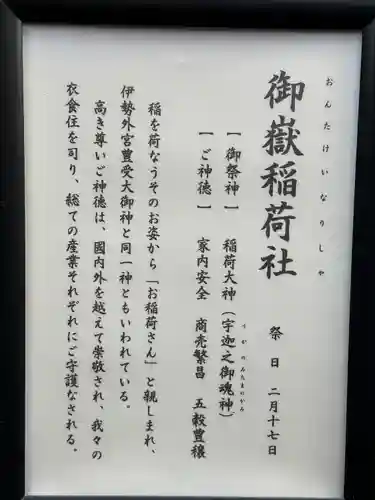 おんたけいなりしや
御嶽稲荷社
祭日 二月十七日
【御祭神】 稲荷大神(宇迦之御魂神)
うかのみたまのかみ
【ご神徳】 家内安全 商売繁昌 五穀豊穣
稲を荷なうそのお姿から「お稲荷さん」と親しまれ、
伊勢外宮豊受大御神と同一神ともいわれている。
高き尊いご神徳は、國内外を越えて崇敬され、我々の
衣食住を司り、総ての産業それぞれにご守護なされる。